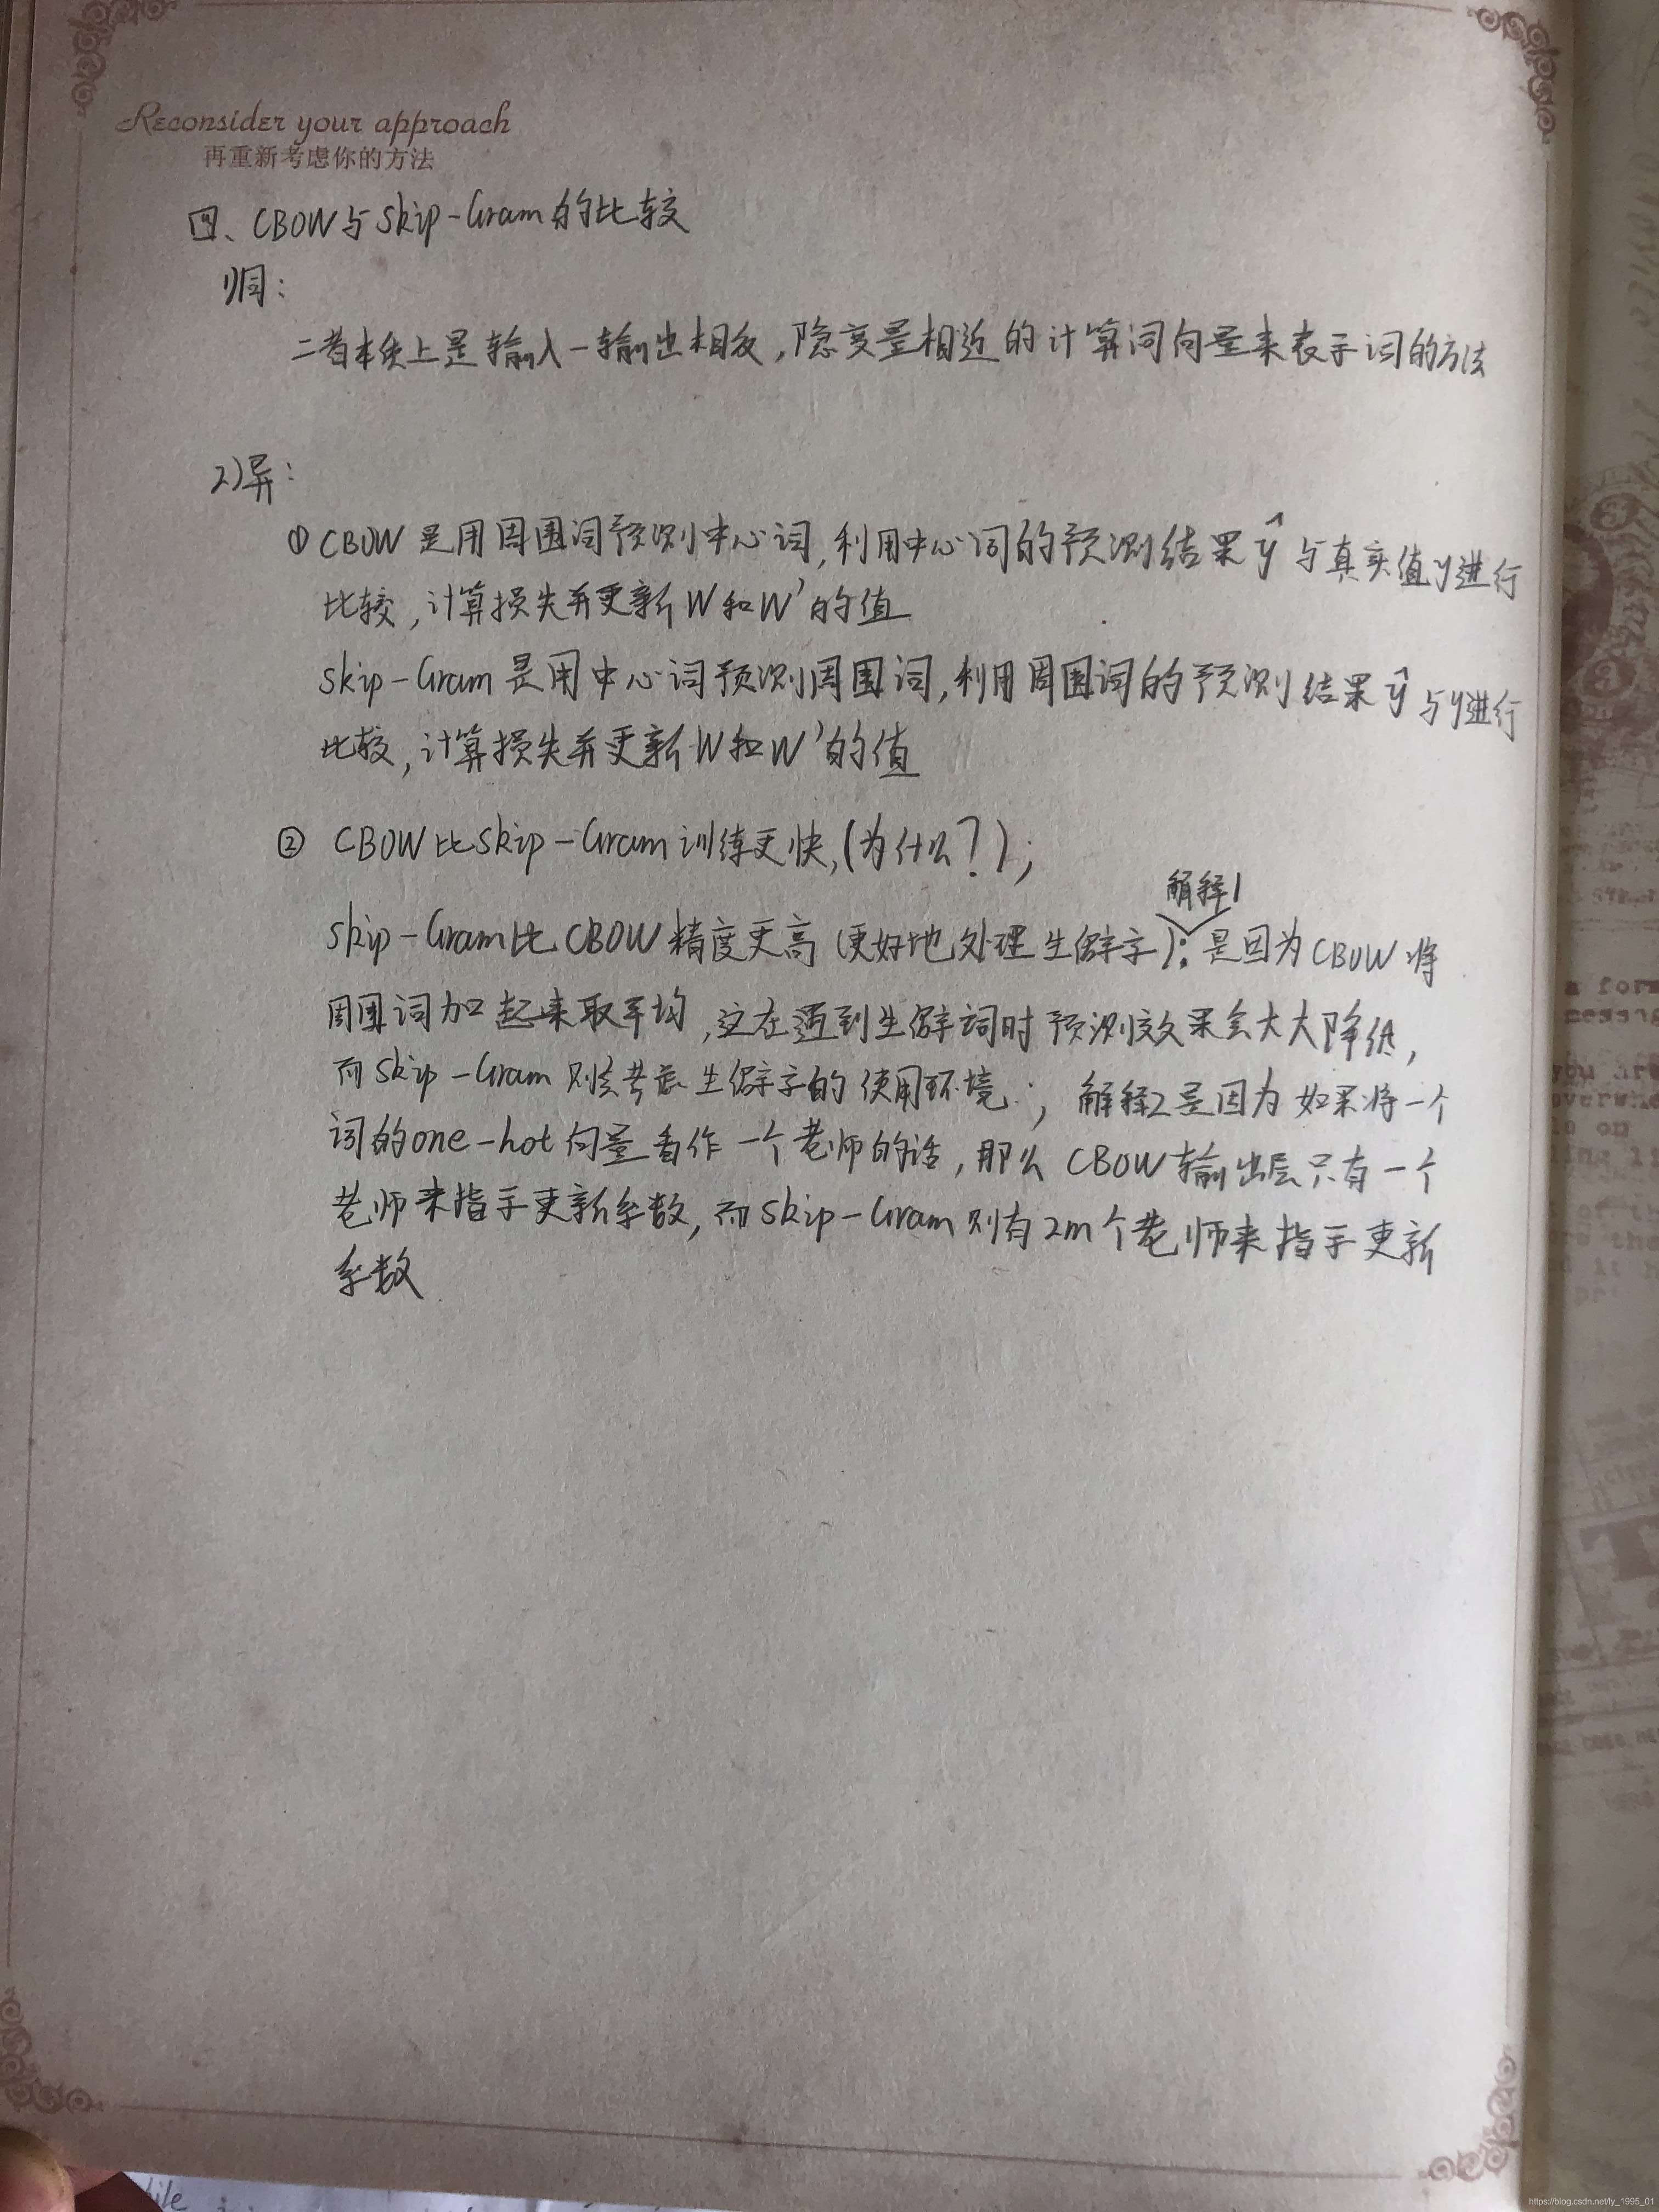 Reconsider your approach
再重新考虑你的方法
四、CBOW与Skip-Gram的比较
1)同:
二者本质上是输入-输出相反,隐变量相近的计算词向量来表示词的方法
2)异:
① CBOW 是用周围词预测中心词,利用中心词的预测结果 ŷ 与真实值y进行
比较,计算损失并更新W和W'的值
Skip-Gram 是用中心词预测周围词,利用周围词的预测结果 ŷ 与y进行
比较,计算损失并更新W和W'的值
② CBOW比Skip-Gram训练更快,(为什么?);
解释1
Skip-Gram比CBOW精度更高(更好地处理生僻字):是因为CBOW将
周围词加起来取平均,这在遇到生僻词时预测效果会大大降低,
而Skip-Gram则会考虑生僻字的使用环境;解释2是因为如果将一个
词的one-hot向量看作一个老师的话,那么CBOW输出层只有一个
老师来指导更新系数,而Skip-Gram则有2m个老师来指导更新
系数
https://blog.csdn.net/ly_1995_01